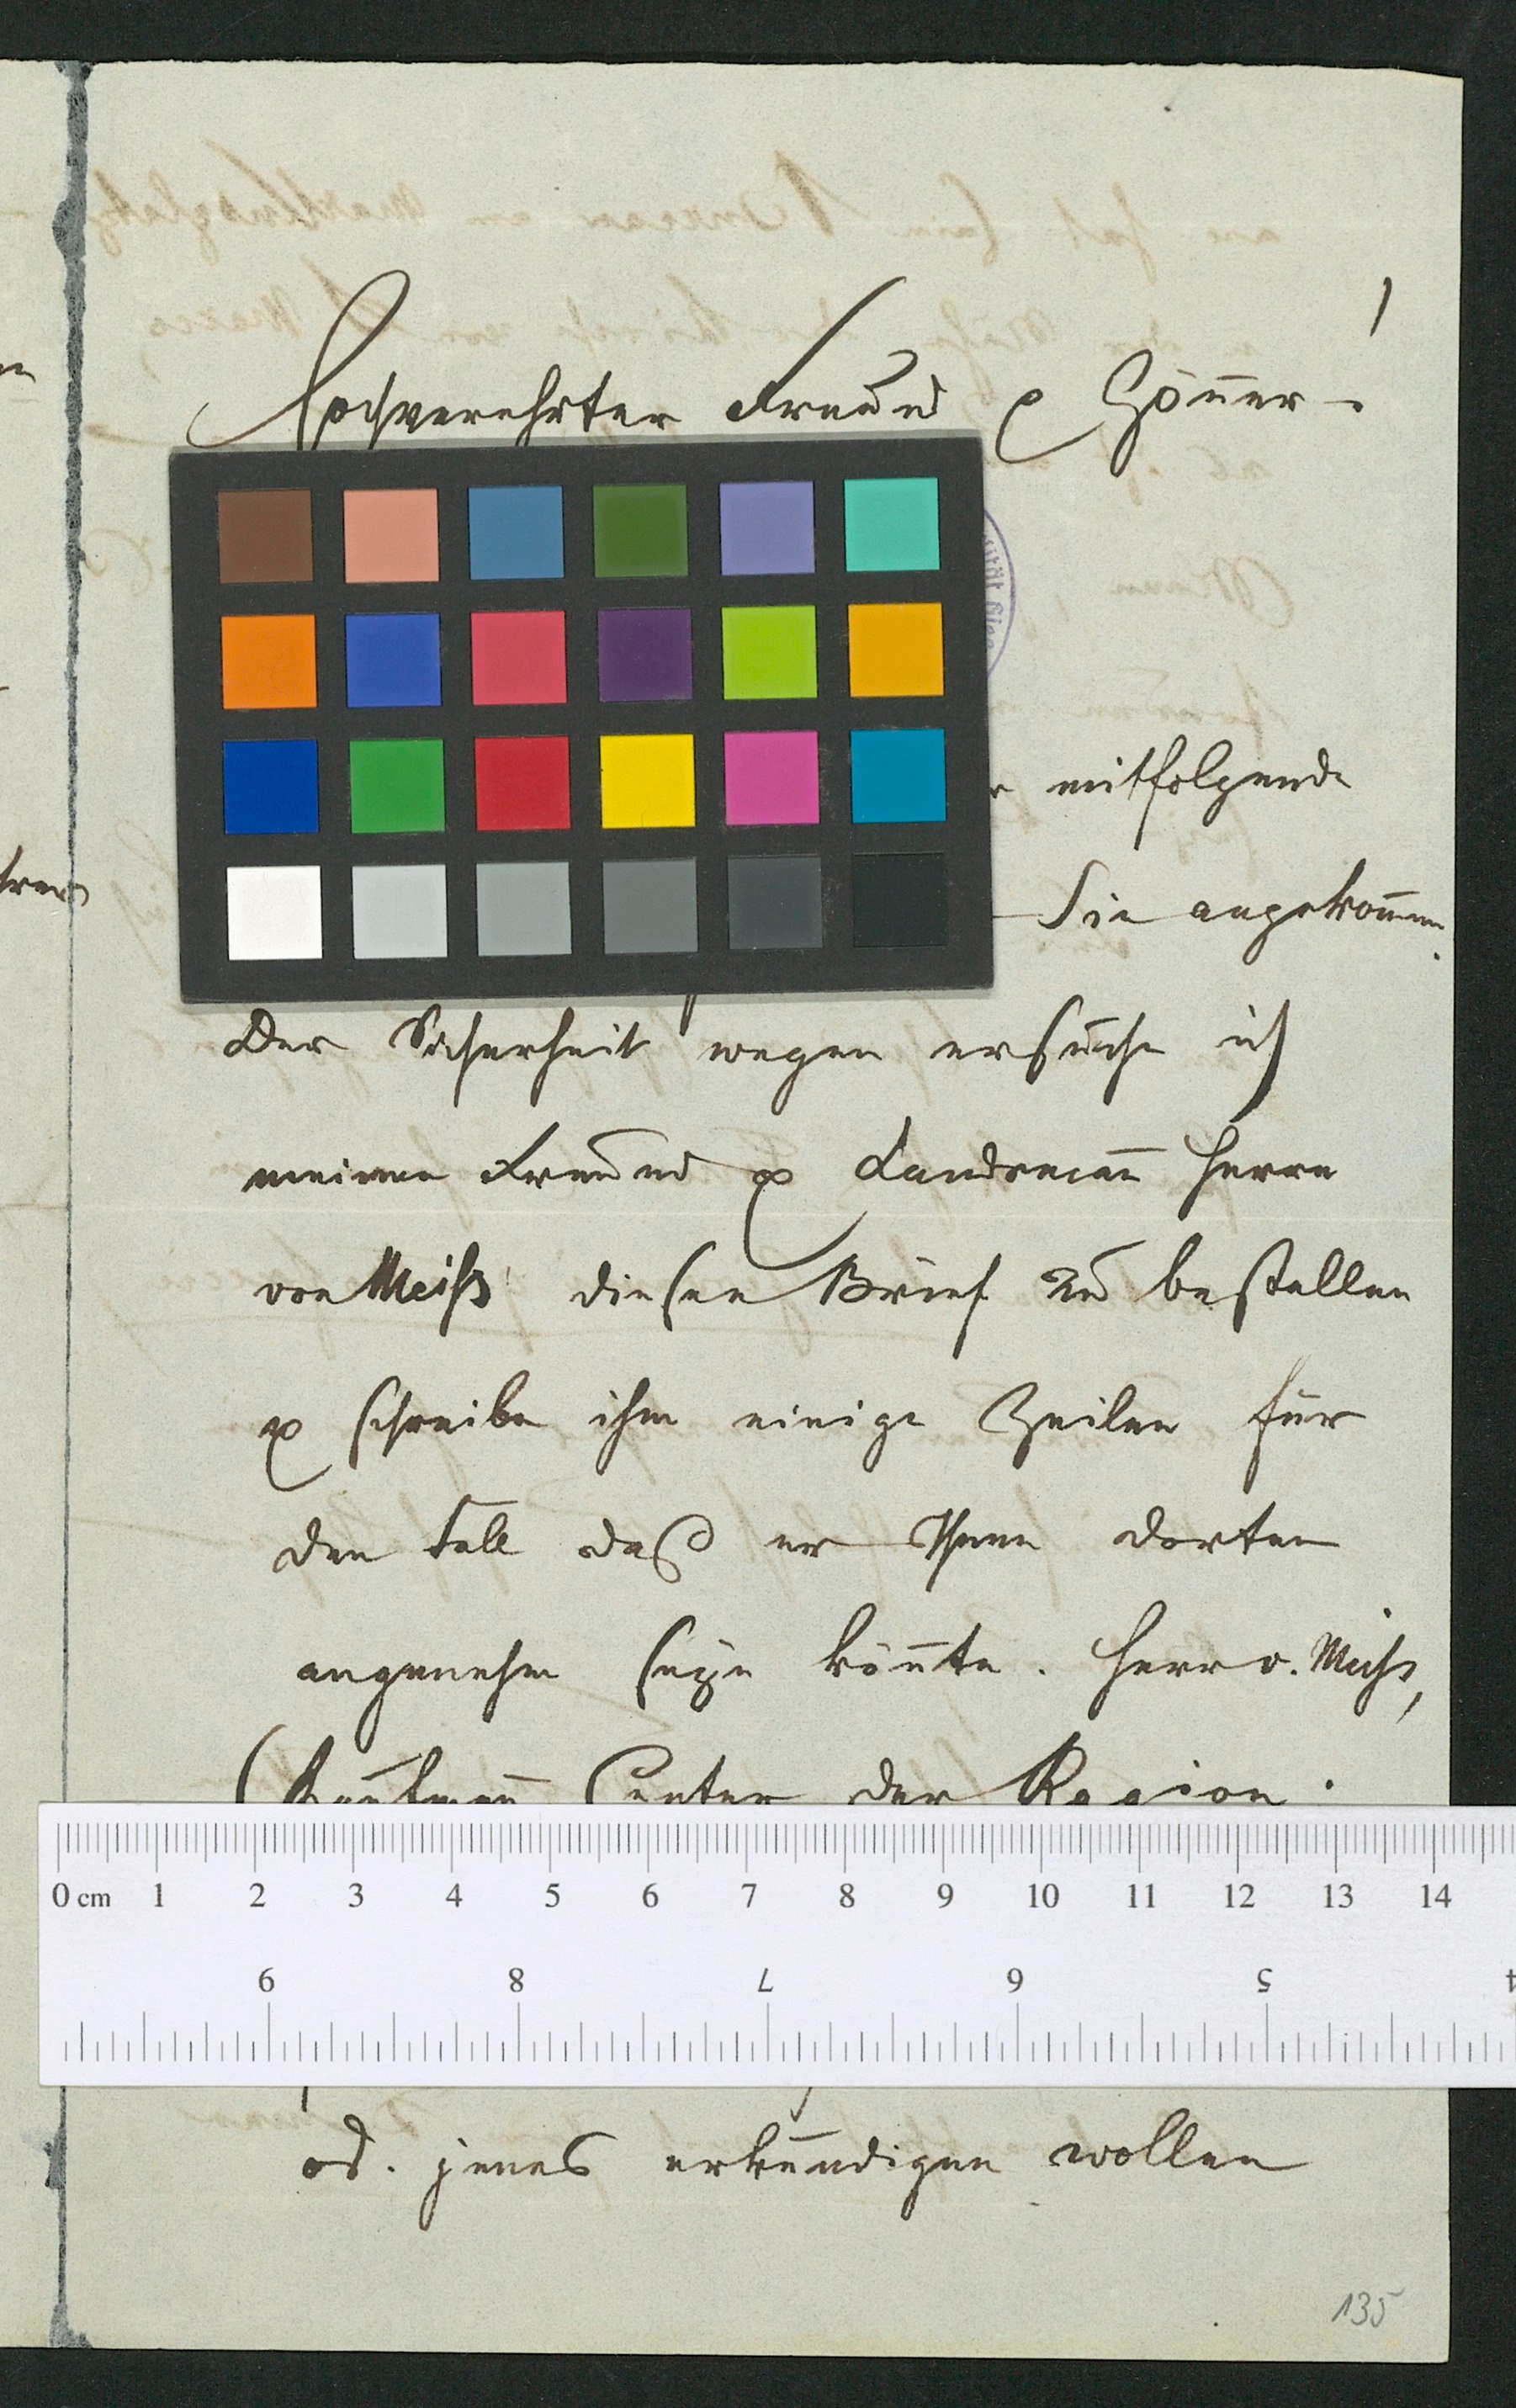 Hochverehrter Freund & Gönner!
mitfolgende
Sie angekommen.
Der Sicherheit wegen ersuche ich
meinen Freund & Landsmann Herrn
von Meiß diesen Brief zu bestellen
& schreibe ihm einige Zeilen für
den Fall daß er Ihnen dorten
angenehm seyn könnte. Herr v. Meiß,
(Kaufmann der Region.
0 cm 1 2 3 4 5 6 7 8 9 10 11 12 13 14
9 8 7 6 5 4
od. jenes erkundigen wollen
135